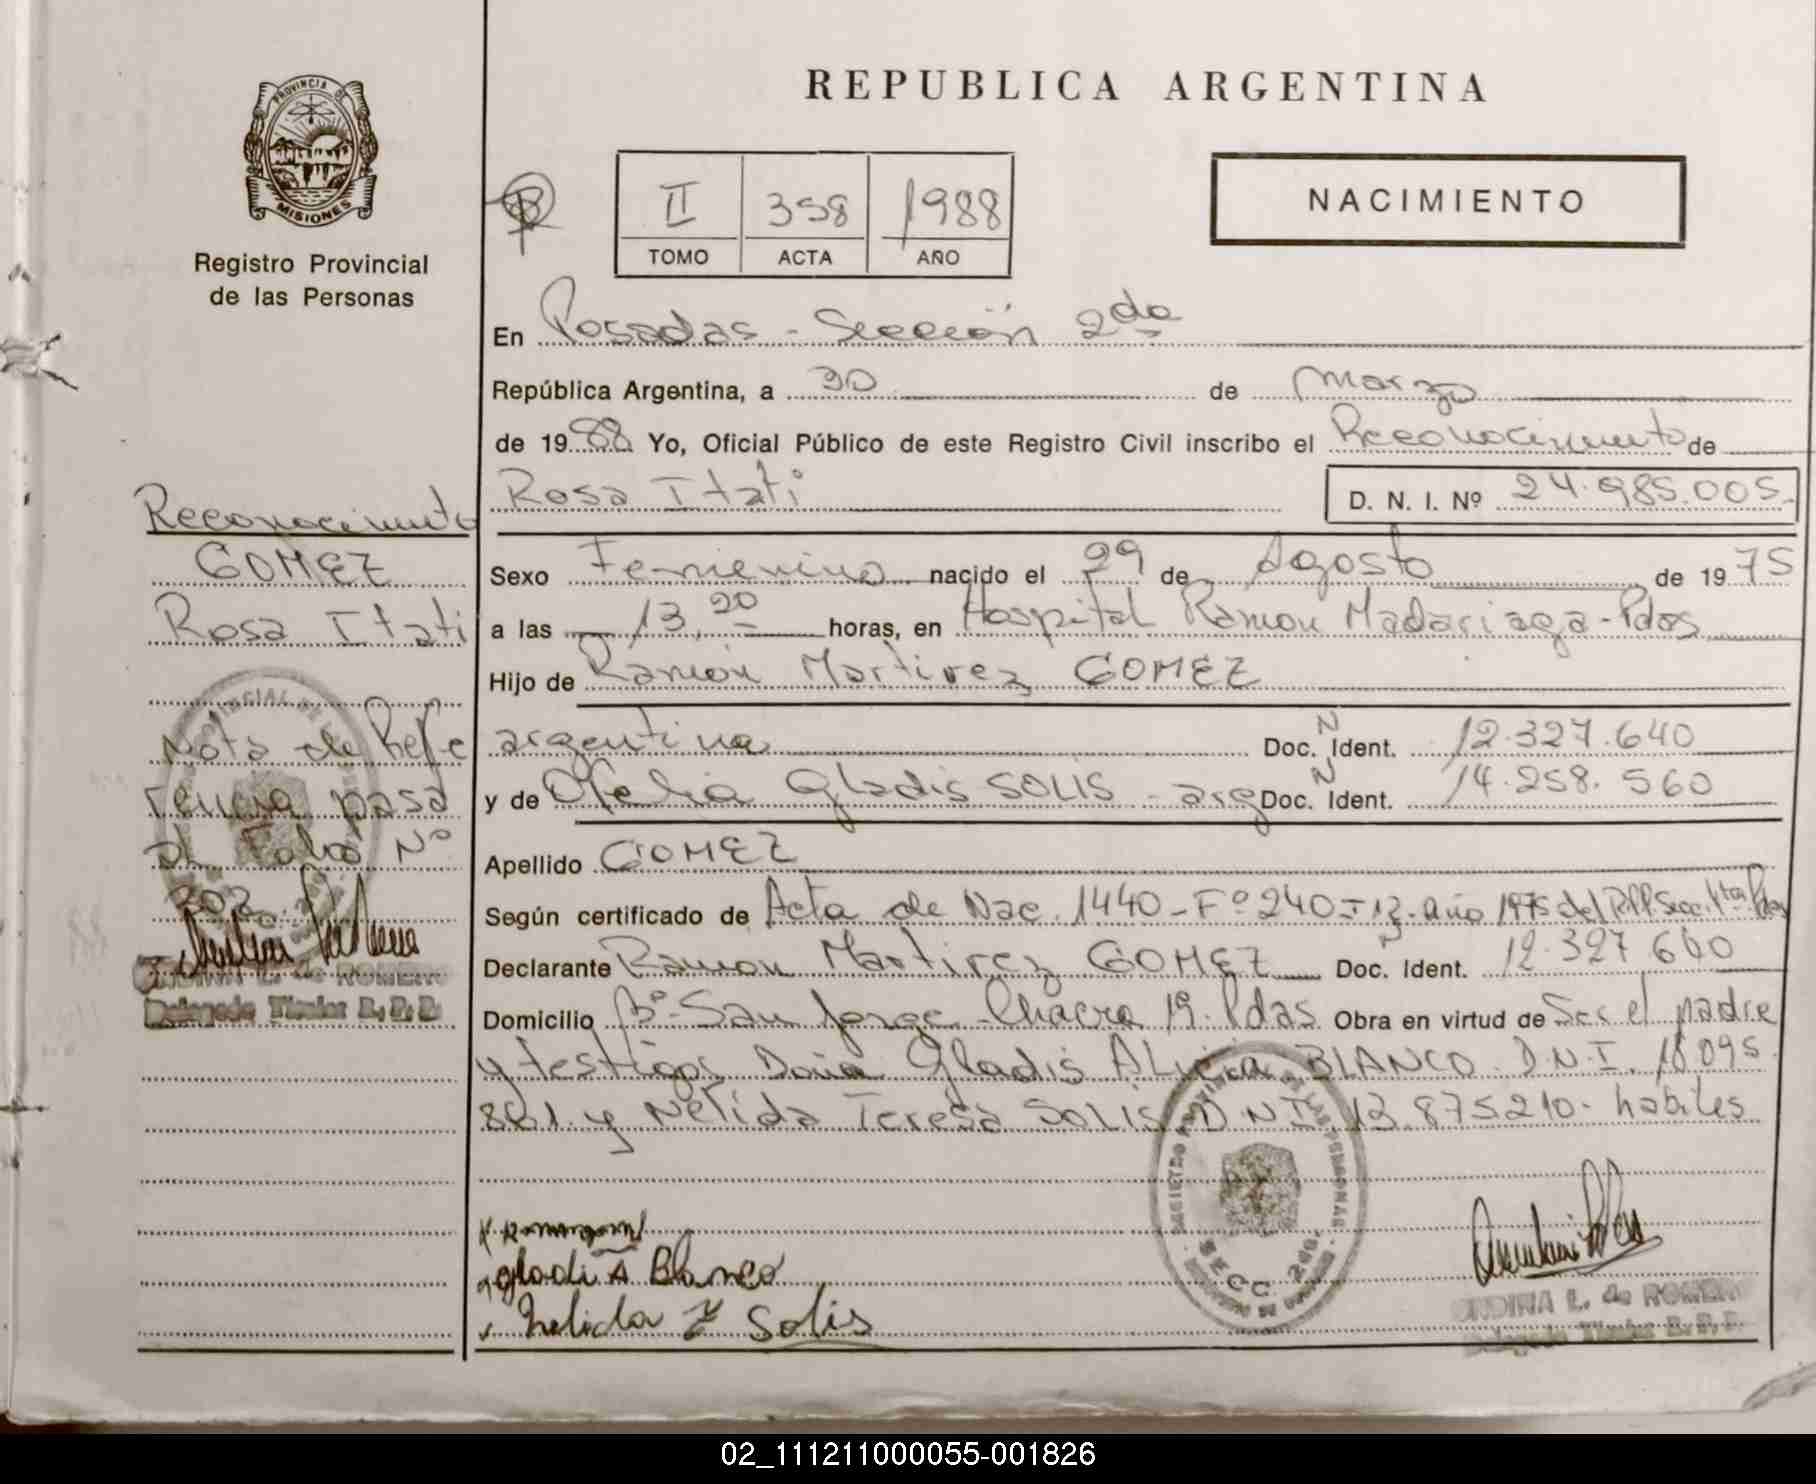 PROVINCIA DE
MISIONES
Registro Provincial
de las Personas
REPUBLICA ARGENTINA
NACIMIENTO
II 358 1988
TOMO ACTA AÑO
En Posadas - Sección 2da
República Argentina, a 30 de Marzo
de 1988 Yo, Oficial Público de este Registro Civil inscribo el Reconocimiento de
Rosa Itati D. N. I. Nº 24.985.005
Sexo Femenino nacido el 29 de Agosto de 1975
a las 13,20 horas, en Hospital Ramon Madariaga - Pdas
Hijo de Ramón Martirez GOMEZ
argentina Doc. N Ident. 12.327.640
y de Ofelia Gladis SOLIS - arg Doc. N Ident. 14.258.560
Apellido GOMEZ
Según certificado de Acta de Nac. 1440 - Fº 240 - T 12 - año 1975 del
Declarante Ramon Martirez GOMEZ Doc. Ident. 12.327.640
Domicilio Bº San Jorge - Chacra 19. Pdas. Obra en virtud de Ser el padre
y testigos Doña Gladis ALicia BLANCO D.N.I. 18.095.
861 y Nelida Teresa SOLIS D.N.I. 13.875210 - habiles
Reconocimiento
GOMEZ
Rosa Itati
Nota de Refe
rencia pasa
al Folio Nº
202
ONDINA L. de ROMERO
Delegada Titular R. P. P.
Gladi A Blanco
Nelida T Solis
SECC. 2da.
ONDINA L. de ROMERO
Delegada Titular R. P. P.
02_111211000055-001826